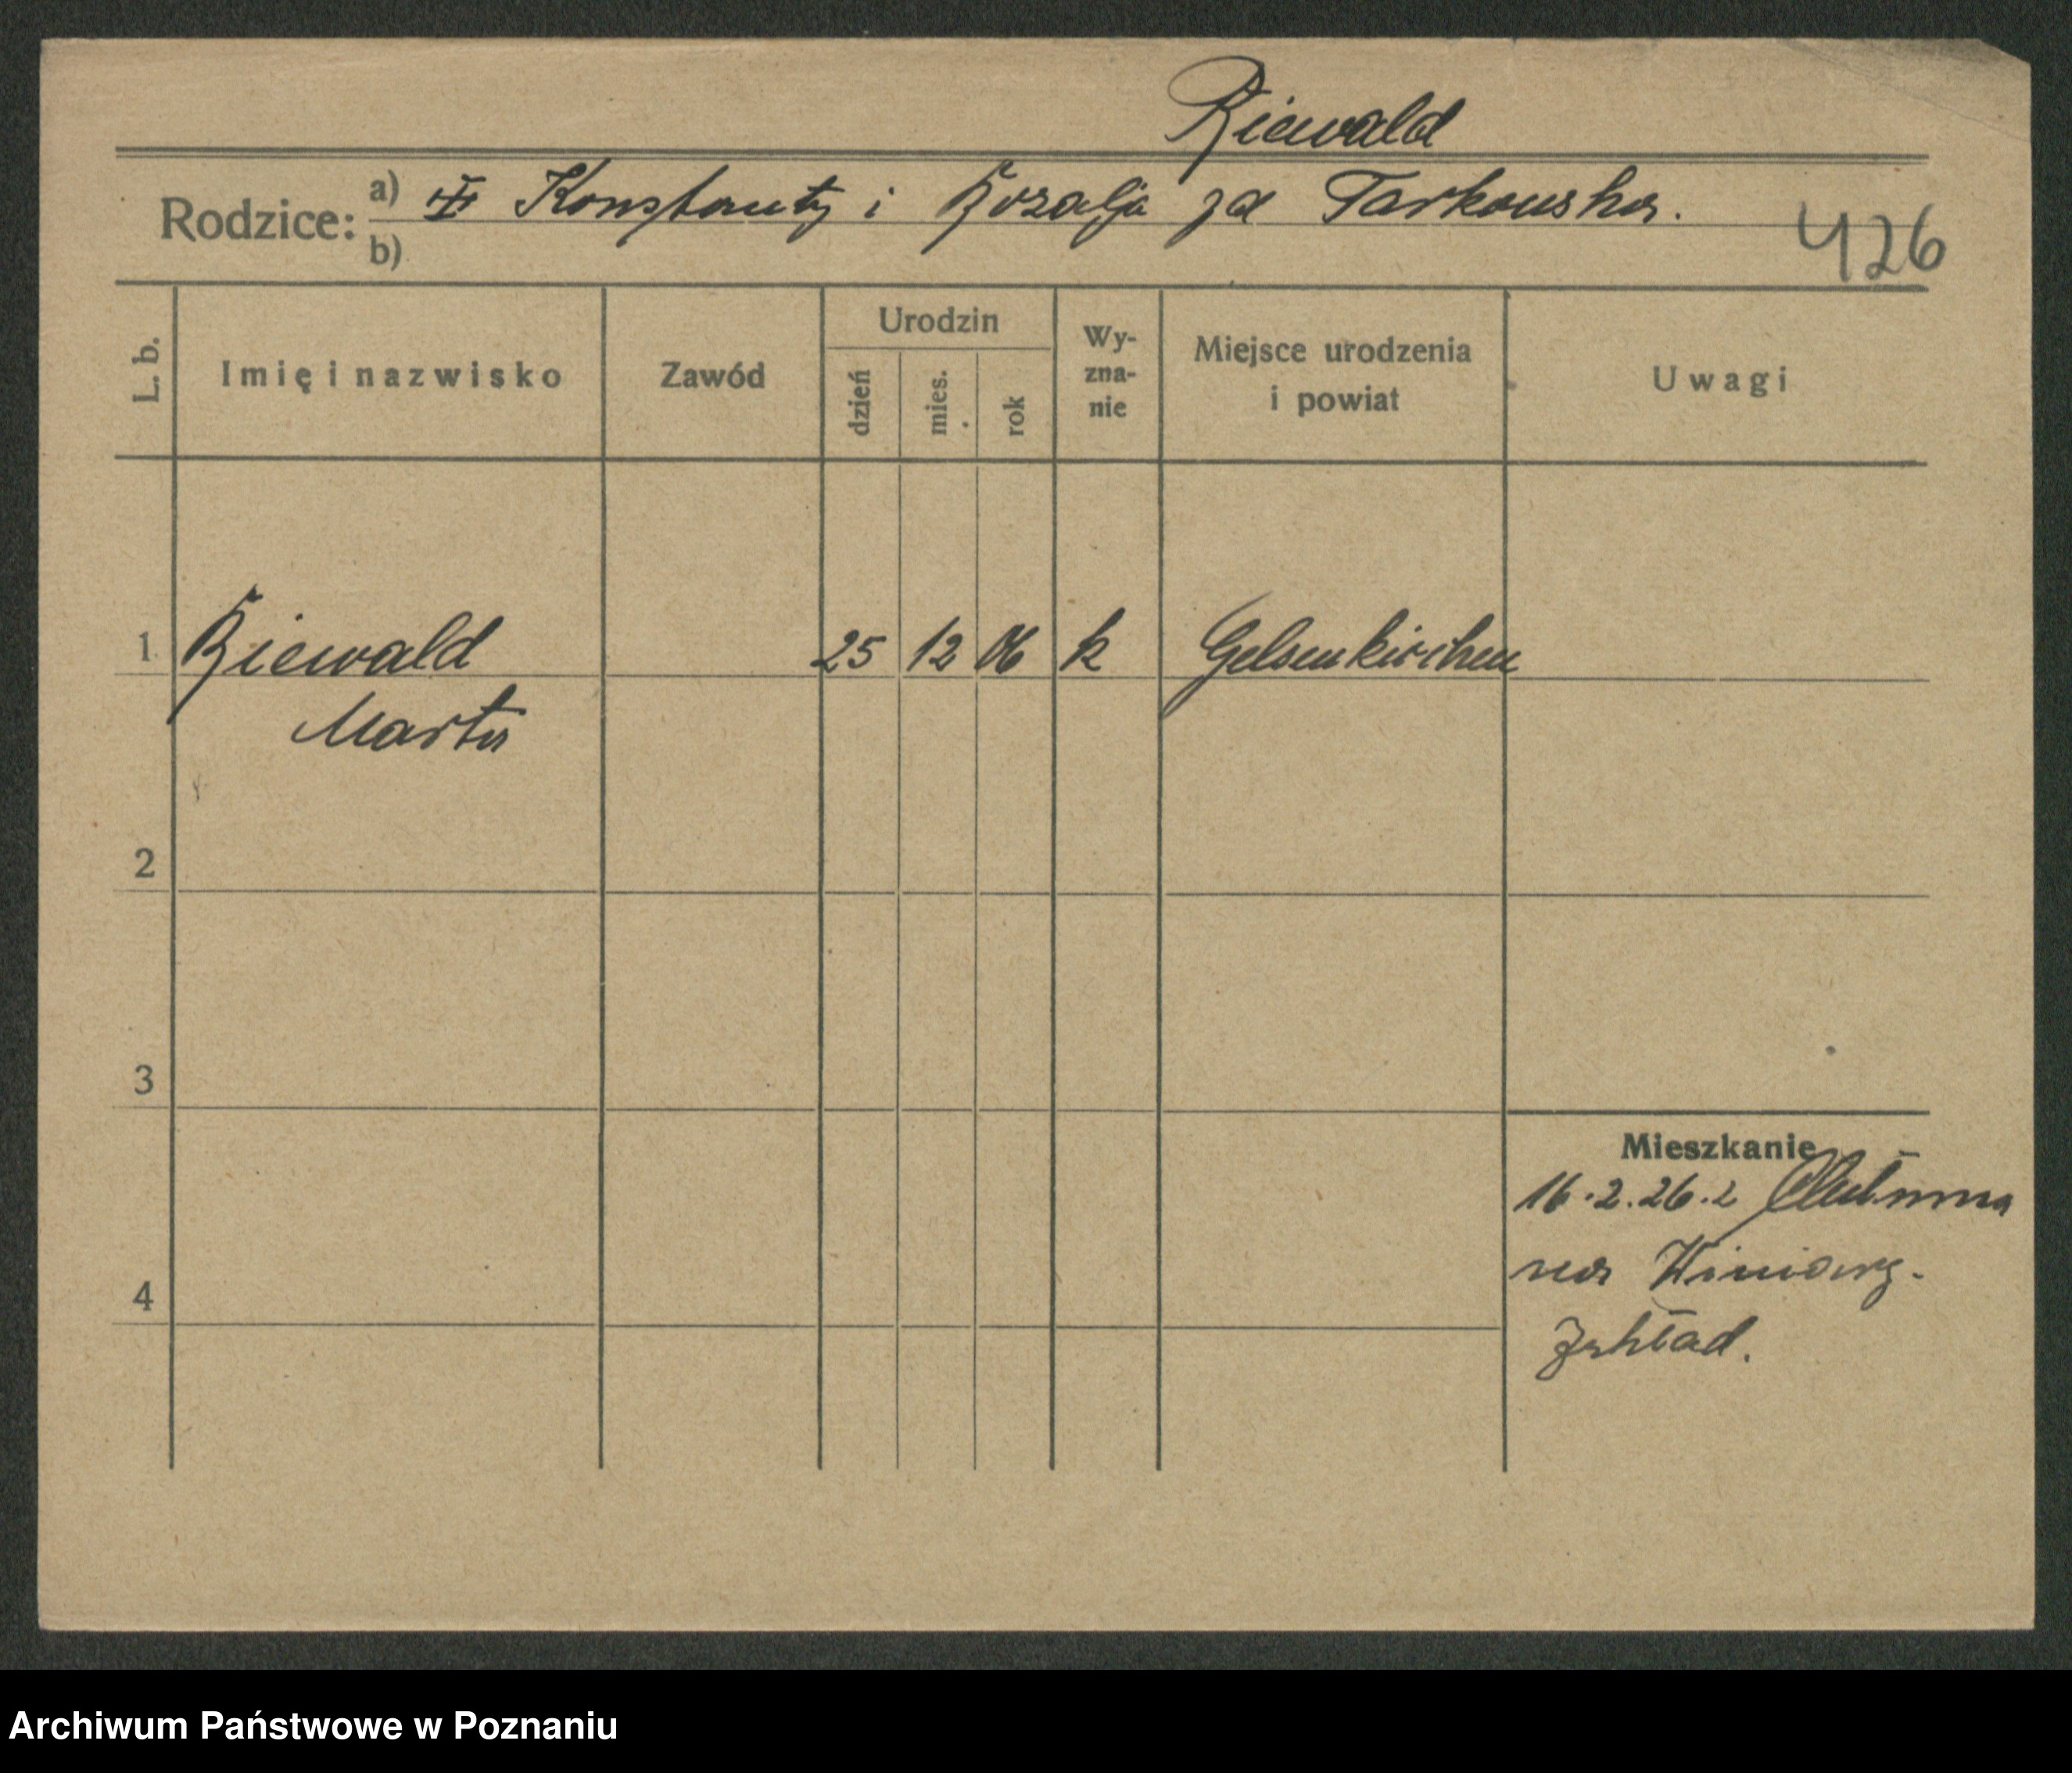 Riewald
Rodzice: a) III Konstanty i Rozalja zd Tarkowska.
b)
426
L. b. Imię i nazwisko Zawód Urodzin dzień mies. rok Wy-zna-nie Miejsce urodzenia i powiat Uwagi
1 Riewald 25 12 06 k Gelsenkirchen
Marta
2
3
Mieszkanie
16.2.26. z
na Winiary.
4
Zakład.
Archiwum Państwowe w Poznaniu